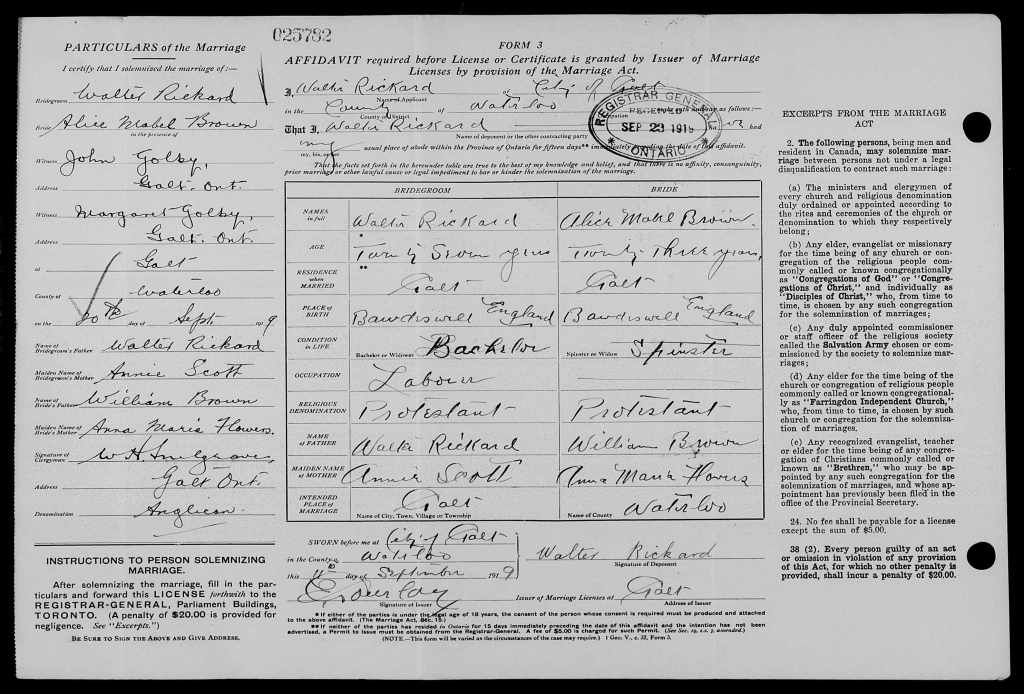 PARTICULARS of the Marriage
I certify that I solemnized the marriage of:—
Bridegroom Walter Rickard
Bride Alice Mabel Brown
in the presence of
Witness John Golby,
Address Galt. Ont.
Witness Margaret Golby,
Address Galt. Ont.
at Galt
County of Waterloo
on the 20th day of Sept 1919
Name of Bridegroom's Father Walter Rickard
Maiden Name of Bridegroom's Mother Annie Scott
Name of Bride's Father William Brown
Maiden Name of Bride's Mother Anna Maria Flowers.
Signature of Clergyman W H
Address Galt Ont.
Denomination Anglican.
INSTRUCTIONS TO PERSON SOLEMNIZING
MARRIAGE.
After solemnizing the marriage, fill in the par-
ticulars and forward this LICENSE forthwith to the
REGISTRAR-GENERAL, Parliament Buildings,
TORONTO. (A penalty of $20.00 is provided for
negligence. See "Excerpts.")
BE SURE TO SIGN THE ABOVE AND GIVE ADDRESS.
023732
FORM 3
AFFIDAVIT required before License or Certificate is granted by Issuer of Marriage
Licenses by provision of the Marriage Act.
I, Walter Rickard of City of Galt
Name of Applicant
in the County of Waterloo as follows:—
County or District
REGISTRAR GENERAL
RECEIVED
SEP 23 1919
* ONTARIO *
That I, Walter Rickard had
Name of deponent or the other contracting party
my usual place of abode within the Province of Ontario for fifteen days** immediately preceding the date of this affidavit.
my, his, or her
That the facts set forth in the hereunder table are true to the best of my knowledge and belief, and that there is no affinity, consanguinity,
prior marriage or other lawful cause or legal impediment to bar or hinder the solemnization of the marriage.
BRIDEGROOM BRIDE
NAMES in full Walter Rickard Alice Mabel Brown.
AGE * Twenty Seven years Twenty Three years,
RESIDENCE when MARRIED ** Galt Galt
PLACE OF BIRTH Bawdeswell England Bawdeswell England
CONDITION IN LIFE Bachelor or Widower Bachelor Spinster or Widow Spinster
OCCUPATION Labourer
RELIGIOUS DENOMINATION Protestant Protestant
NAME OF FATHER Walter Rickard William Brown
MAIDEN NAME OF MOTHER Annie Scott Anna Maria Flowers
INTENDED PLACE OF MARRIAGE Galt Waterloo
Name of City, Town, Village or Township Name of County
SWORN before me at City of Galt
in the County of Waterloo
this day of September 1919
Walter Rickard
Signature of Deponent
Signature of Issuer
Issuer of Marriage Licenses at Galt
Address of Issuer
*If either of the parties is under the legal age of 18 years, the consent of the person whose consent is required must be produced and attached
to the above affidavit. (The Marriage Act, Sec. 15.)
**If neither of the parties has resided in Ontario for 15 days immediately preceding the date of this affidavit and the intention has not been
advertised, a Permit to Issue must be obtained from the Registrar-General. A fee of $5.00 is charged for such Permit. (See Sec. 19, s.s. 7, amended.)
(NOTE.—This form will be varied as the circumstances of the case may require.) 1 Geo. V., c. 32, Form 3.
EXCERPTS FROM THE MARRIAGE
ACT
2. The following persons, being men and
resident in Canada, may solemnize mar-
riage between persons not under a legal
disqualification to contract such marriage:
(a) The ministers and clergymen of
every church and religious denomination
duly ordained or appointed according to
the rites and ceremonies of the church or
denomination to which they respectively
belong;
(b) Any elder, evangelist or missionary
for the time being of any church or con-
gregation of the religious people com-
monly called or known congregationally
as "Congregations of God" or "Congre-
gations of Christ," and individually as
"Disciples of Christ," who, from time to
time, is chosen by any such congregation
for the solemnization of marriages;
(c) Any duly appointed commissioner
or staff officer of the religious society
called the Salvation Army chosen or com-
missioned by the society to solemnize mar-
riages;
(d) Any elder for the time being of the
church or congregation of religious people
commonly called or known congregational-
ly as "Farringdon Independent Church,"
who, from time to time, is chosen by such
church or congregation for the solemniza-
tion of marriages,
(e) Any recognized evangelist, teacher
or elder for the time being of any congre-
gation of Christians commonly called or
known as "Brethren," who may be ap-
pointed by any such congregation for the
solemnization of marriages, and whose ap-
pointment has previously been filed in the
office of the Provincial Secretary.
24. No fee shall be payable for a license
except the sum of $5.00.
38 (2). Every person guilty of an act
or omission in violation of any provision
of this Act, for which no other penalty is
provided, shall incur a penalty of $20.00.